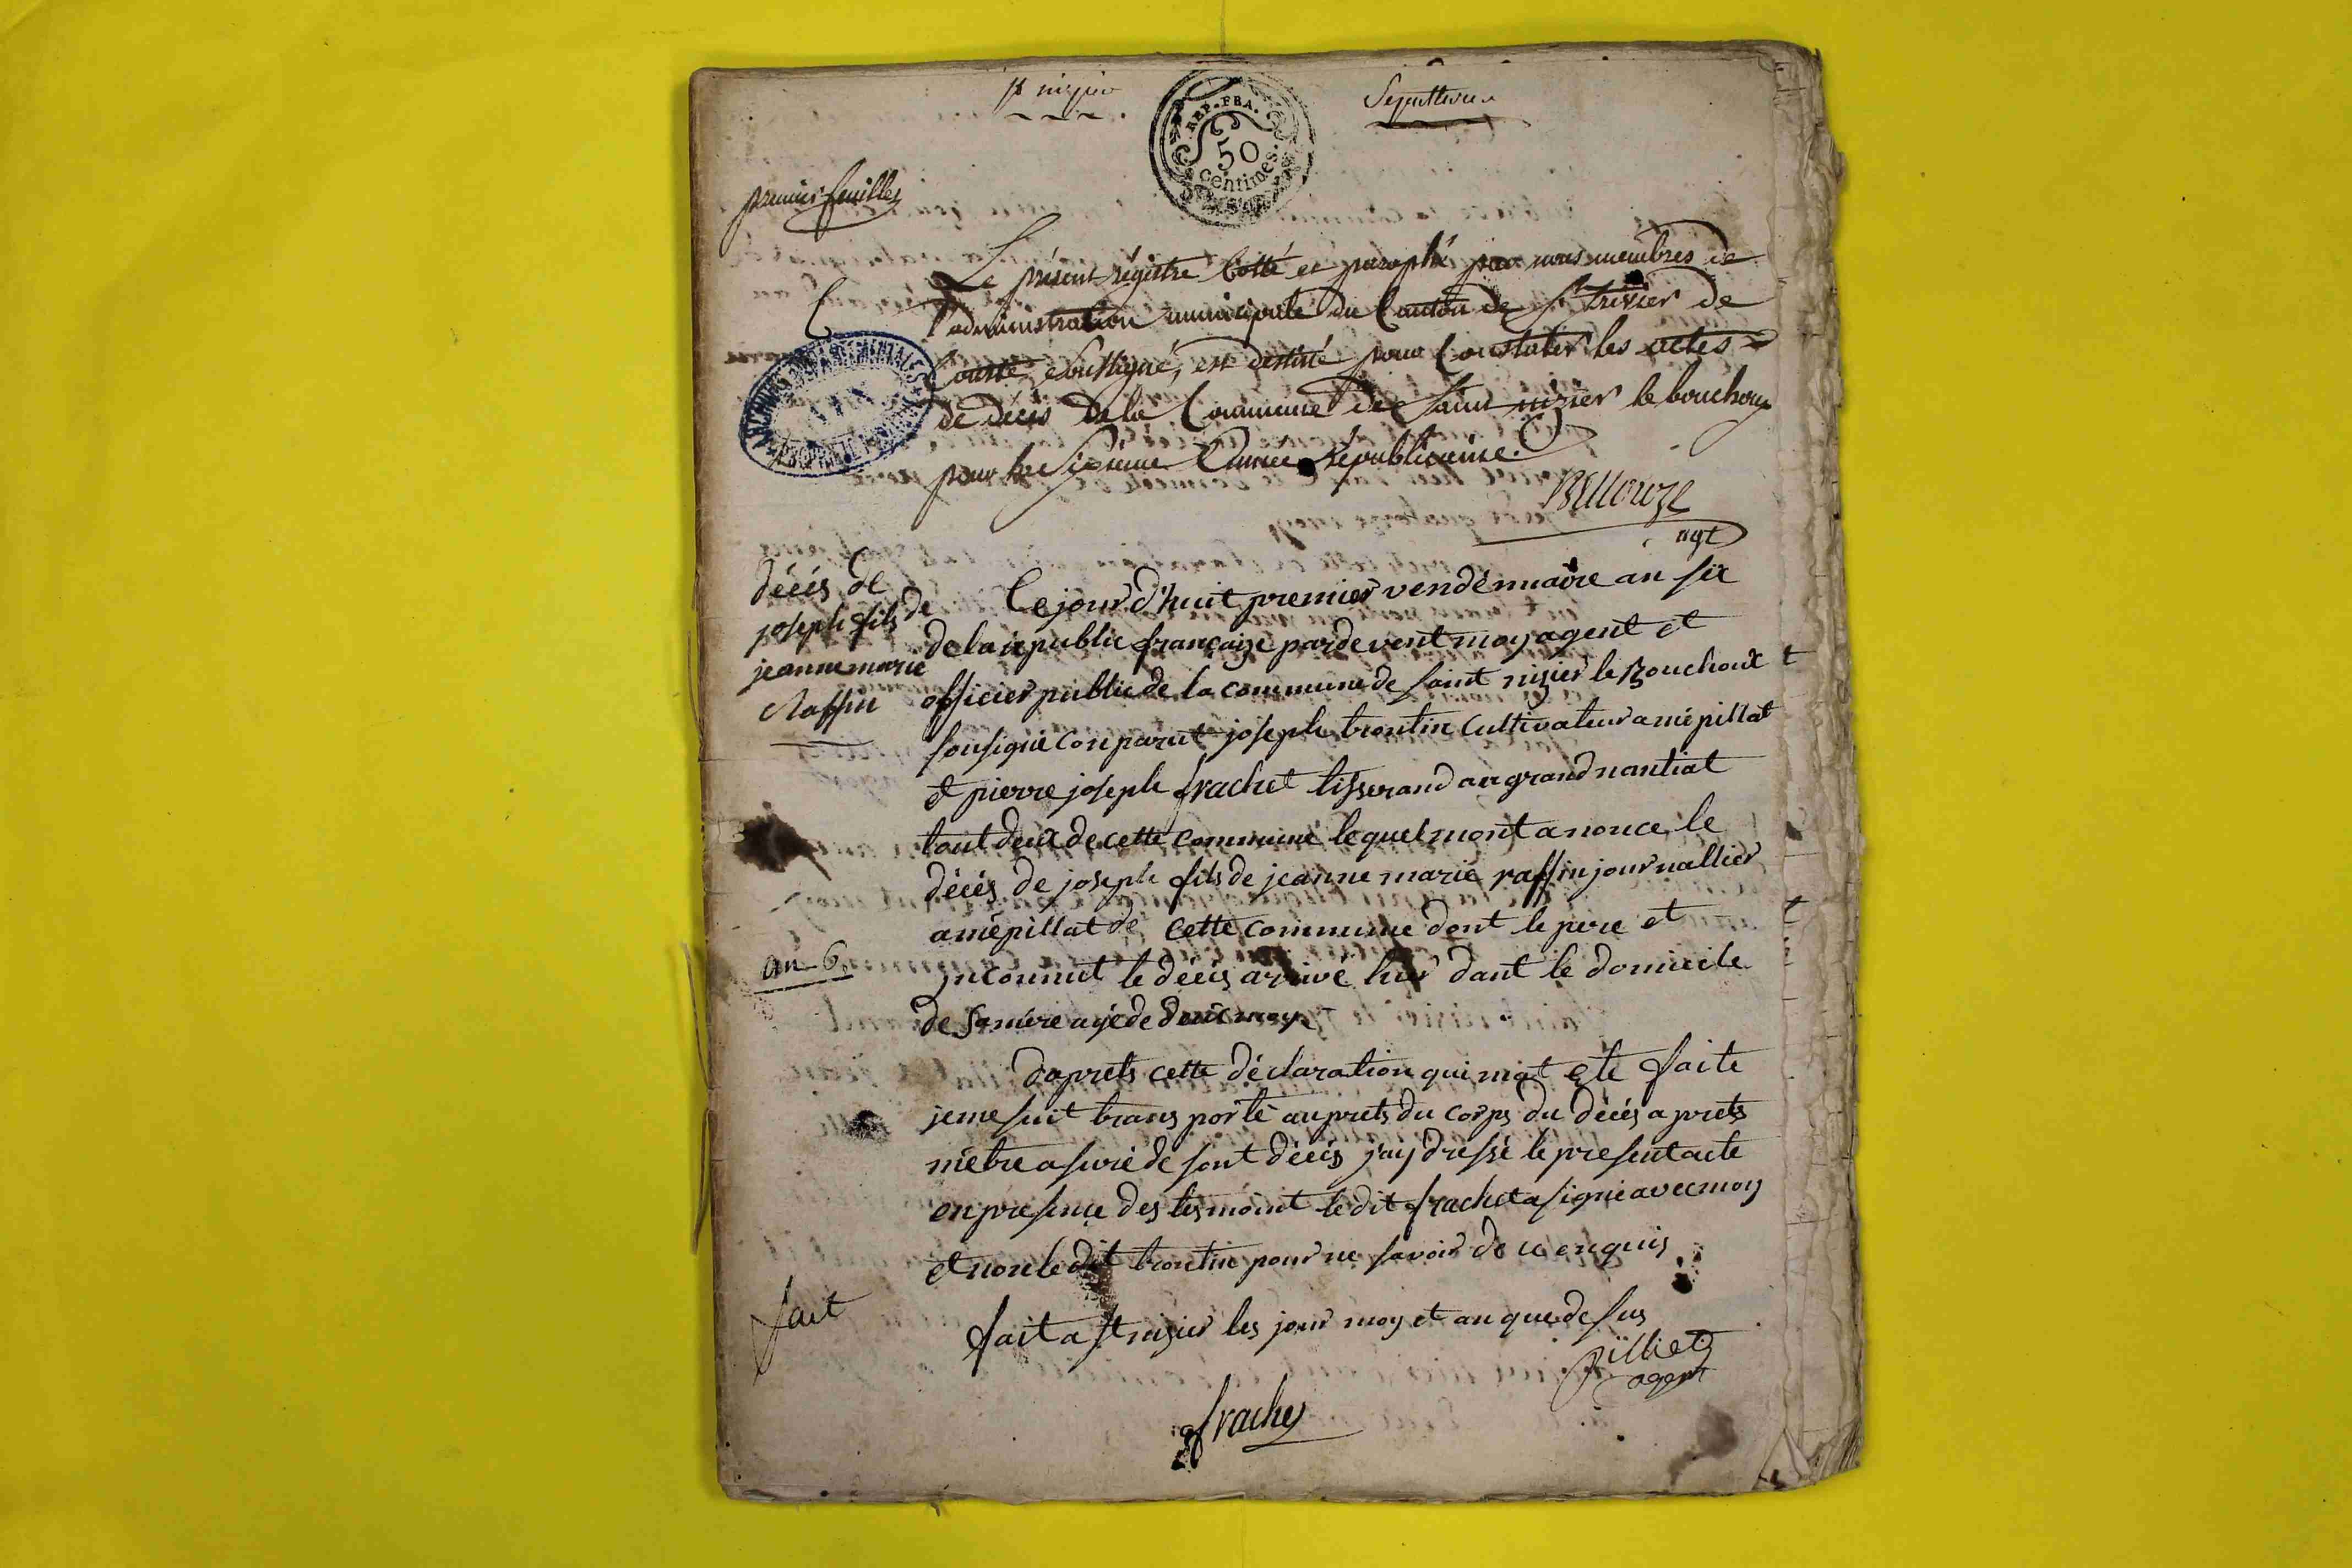 st nizier
Sepultures
REP. FRA.
50
centimes.
premier feuillet
Le présent régistre Cotté et paraphé par nous membres de
l'administration municipale du Canton de St trivier de
Courte, soussigné, est destiné pour Constater les actes
de deces de la Commune de Saint nizier le bouchoux
pour la sixieme année républicaine.
Bellouze
agt
ARCHIVES DÉPARTEMENTALES
AIN
décés de
joseph fils de
jeanne marie
Raffin
Cejour d'huit premier vendémiaire an six
de la republic françaize pardevent moy agent et
officier public de la commune de saint nizier le Bouchoux
sousigné conparut joseph trontin cultivateur a mépillat
et pierre joseph frachet tisserand au grand nantiat
tout deux de cette commune lequel mont anoncé le
décés de joseph fils de jeanne marie raffin journallier
a mépillat de cette commune dont le pere et
jnconnut le décés arrivé hier dant le domicile
de sa mére agé de deux moy
an 6
daprets cette déclaration qui mat eté faite
je me suit transporté auprets du corps du décés aprets
métre asuré de sont décés j'ay dressé le present acte
en presence des tesmoint le dit frachet a signé avec moy
et non le dit trontin pour ne savoir de ce enquis
fait
fait a st nizier les jour moy et an que desus
pilliet
agent
frachet